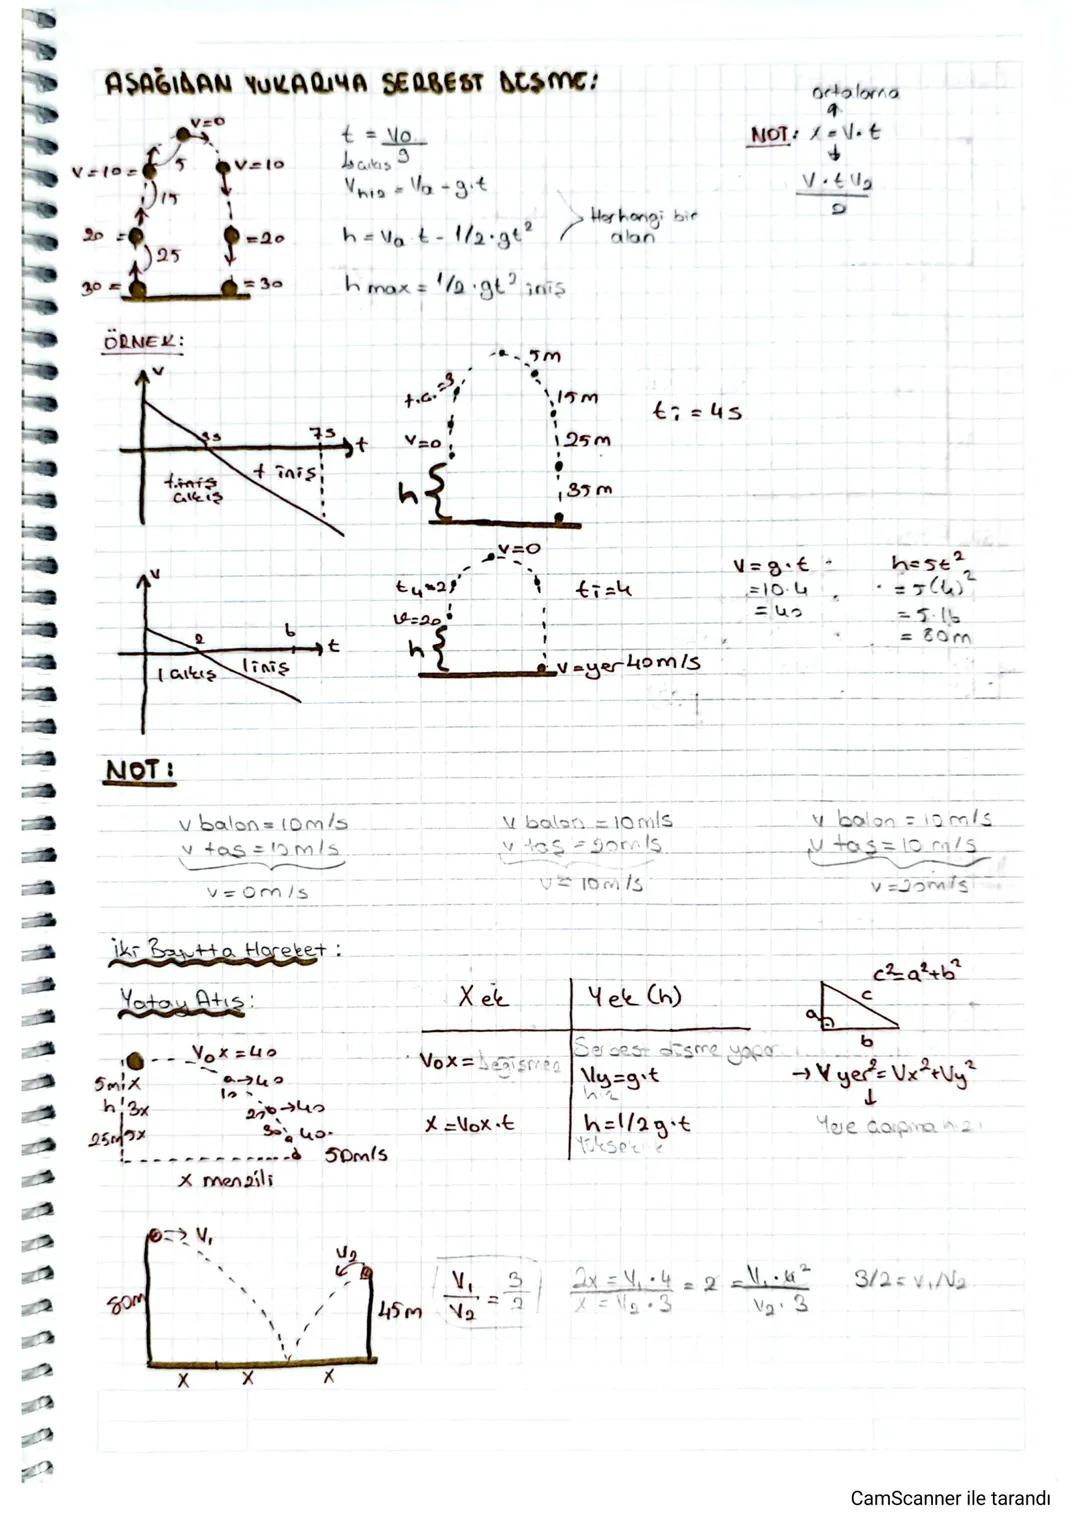 AŞAĞIDAN YUKARIYA SERBEST DÜŞME:
V=0
V=10=
5
V=10
15
20 =
=20
25
30 =
=30
t = V0/g
çıkış
Vhız = V0 - g.t
h = V0 t - 1/2.gt²
Herhangi bir
alan
h max = 1/2.gt² iniş
ortalama
NOT: X = V.t
V.tV2
2
ÖRNEK:
V
3s
7s
t
t iniş
çıkış
t iniş
5m
t.ç.=3
15m
V=0
25m
h
35m
ti = 4s
V
2
6
t
1 çıkış
1 iniş
V=0
tç=2
ti=4
V=20
h
V=yer 40m/s
V = g.t
=10.4
=40
h=5t²
= 5(4)²
= 5.16
= 80m
NOT:
V balon = 10m/s
V taş = 10m/s
V = 0m/s
V balon = 10m/s
V taş = 20m/s
V = 10m/s
V balon = 10m/s
V taş = 10 m/s
V = 20m/s
İki Boyutta Hareket:
Yatay Atış:
X ek
Y ek (h)
c²=a²+b²
a
c
b
V0x=40
5m
X
a→40
10
h
3x
20→40
25m
5x
30
40
50m/s
X menzili
V0x = Değişmez
X = V0x.t
Serbest düşme yapar
Vy=g.t
hız
h=1/2 g.t
Yükseklik
→ V yer² = Vx²+Vy²
Yere çarpma hızı
V1
V2
80m
45m
X
X
X
V1/V2 = 3/2
2x = V1.4 / x = V2.3 = 2 = V1.4² / V2.3
3/2 = V1/V2
CamScanner ile tarandı